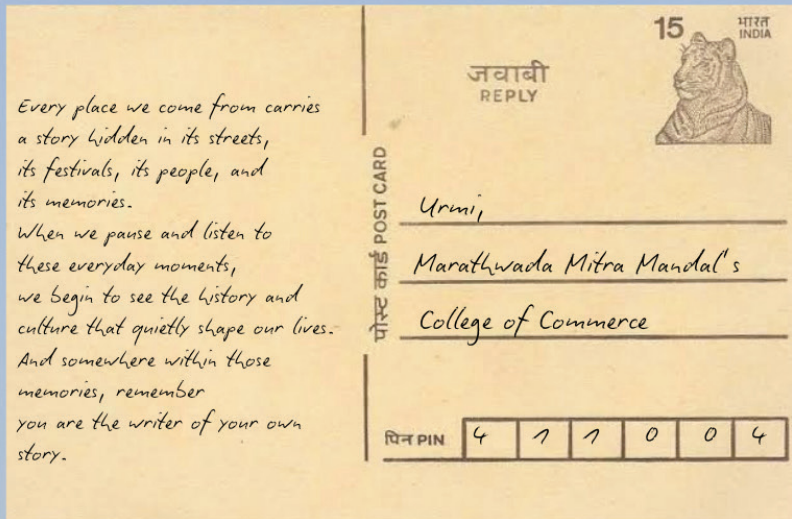 Every place we come from carries
a story hidden in its streets,
its festivals, its people, and
its memories.
When we pause and listen to
these everyday moments,
we begin to see the history and
culture that quietly shape our lives.
And somewhere within those
memories, remember
you are the writer of your own
story.
पोस्ट कार्ड POST CARD
जवाबी
REPLY
15 भारत
INDIA
Urmi,
Marathwada Mitra Mandal's
College of Commerce
पिन PIN 4 1 1 0 0 4